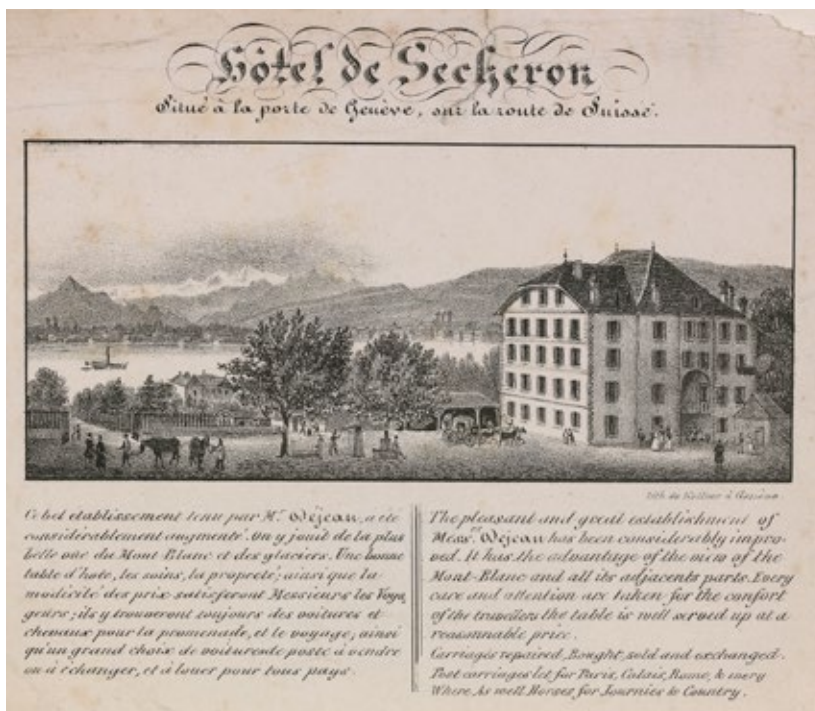 Hôtel de Secheron
Situé à la porte de Genève, sur la route de Suisse.
Lith. de Kellner à Genève.
Ce bel etablissement tenu par Mr. Dejean, a été
considérablement augmenté. On y jouit de la plus
belle vue du Mont-Blanc et des glaciers. Une bonne
table d'hote, les soins, la propreté; ainsi que la
modicité des prix satisferont Messieurs les Voya
geurs; ils y trouveront toujours des voitures et
chevaux pour la promenade, et le voyage; ainsi
qu'un grand choix de voitures de poste à vendre
ou à échanger, et à louer pour tous pays.
The pleasant and great establishment of
Messrs. Dejean has been considerably impro-
ved. It has the advantage of the view of the
Mont-Blanc and all its adjacents parts. Every
care and attention are taken for the confort
of the travellers the table is well served up at a
reasonnable price.
Carriages repaired, Bought, sold and exchanged.
Post carriages let for Paris, Calais, Rome, & every
Where, As well Horses for Journies & Country.